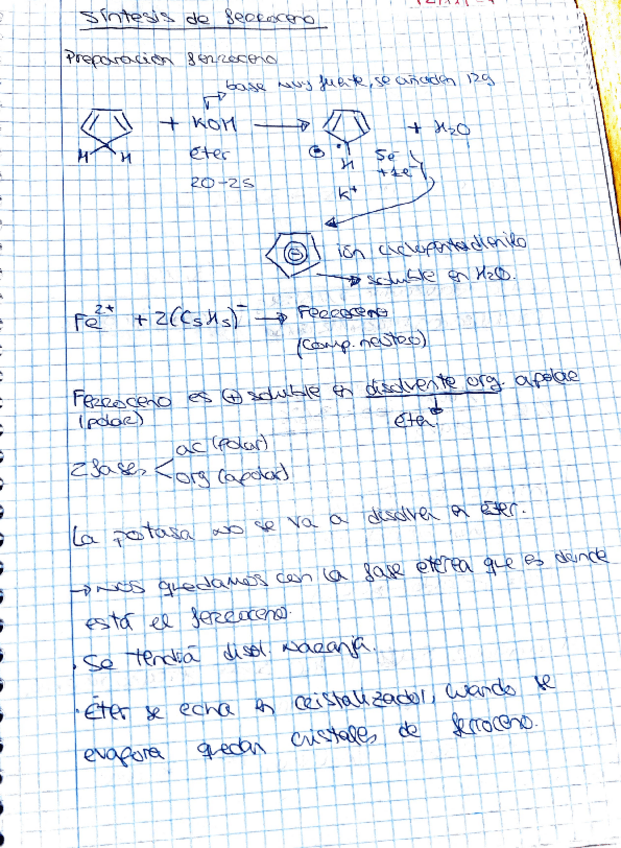 Síntesis de ferroceno
Preparación ferroceno
base muy fuerte, se añaden 12g
+ KOH → + H₂O
H H
éter
20-25
⊖ H
5e⁻
+1e⁻
K⁺
⊖ ión ciclopentadienilo
→ soluble en H₂O.
Fe²⁺ + 2(C₅H₅)⁻ → Ferroceno
(comp. neutro)
Ferroceno es ⊕ soluble en disolvente org. apolar
(polar)
éter
2 fases < ac (polar)
org (apolar)
La potasa no se va a disolver en éter.
→ nos quedamos con la fase etérea que es donde
está el ferroceno.
· Se tendrá disol. naranja.
· Éter se echa en cristalizador, cuando se
evapora quedan cristales de ferroceno.